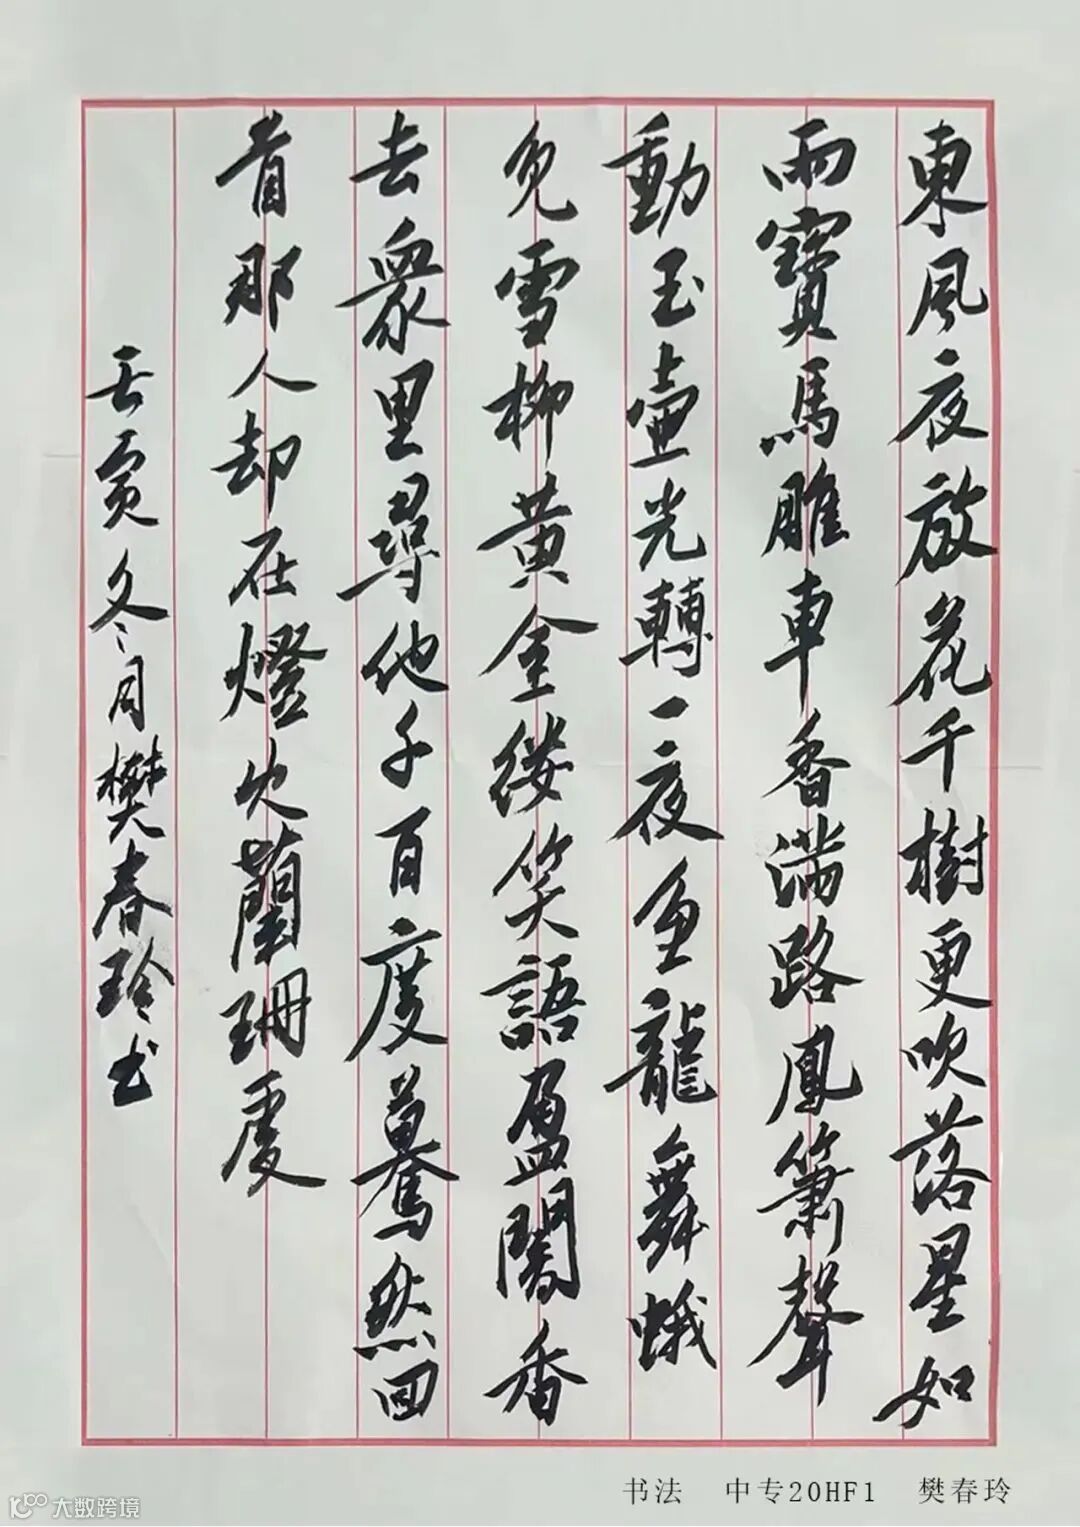 東風夜放花千樹更吹落星如
雨寶馬雕車香满路鳳簫聲
動玉壺光轉一夜魚龍舞蛾
兒雪柳黄金缕笑語盈闇香
去衆里尋他千百度驀然回
首那人却在燈火蘭珊處
壬寅冬月樊春玲书
书法 中专20HF1 樊春玲
大数跨境